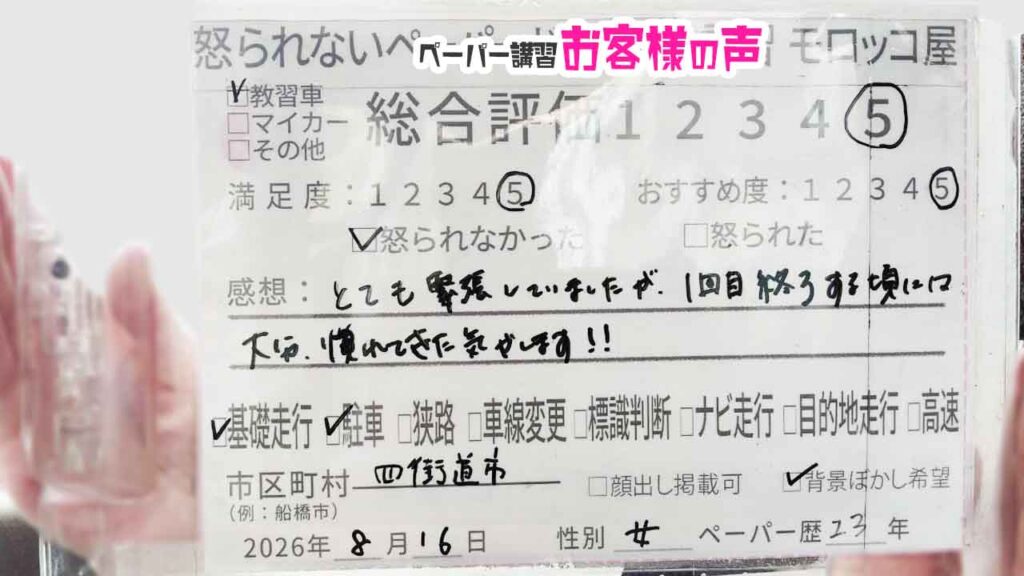 怒られないペーパー
ペーパー講習お客様の声
習 モロッコ屋
教習車
マイカー
その他
総合評価 1 2 3 4 5
満足度：1 2 3 4 5 おすすめ度：1 2 3 4 5
怒られなかった 怒られた
感想：とても緊張していましたが、1回目終了する頃には
大分、慣れてきた気がします!!
基礎走行 駐車 狭路 車線変更 標識判断 ナビ走行 目的地走行 高速
市区町村 四街道市 顔出し掲載可 背景ぼかし希望
(例：船橋市)
2026年 8月16日 性別 女 ペーパー歴23年